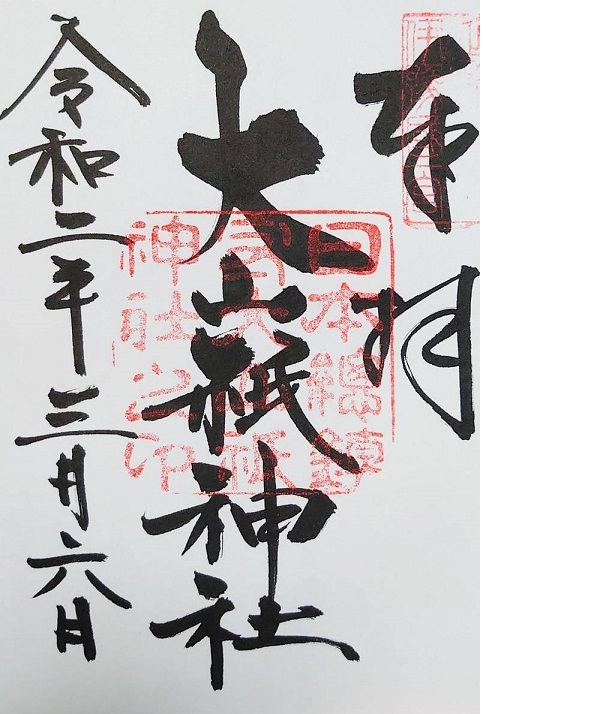 奉拝
大山祇神社
令和二年三月六日
日本總鎮
守大山祇
神社之印